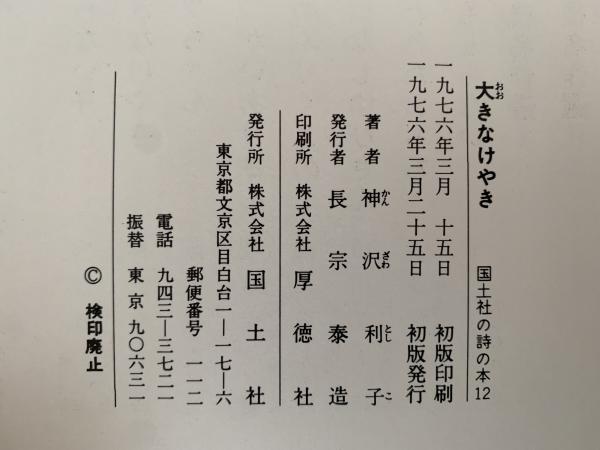 大きなけやき 国土社の詩の本12
おお
一九七六年三月 十五日 初版印刷
一九七六年三月二十五日 初版発行
著者 神沢利子
かん ざわ とし こ
発行者 長宗泰造
印刷所 株式会社 厚徳社
発行所 株式会社 国土社
東京都文京区目白台一—一七—六
郵便番号 一一二
電話 九四三—三七二一
振替 東京九〇六三一
© 検印廃止